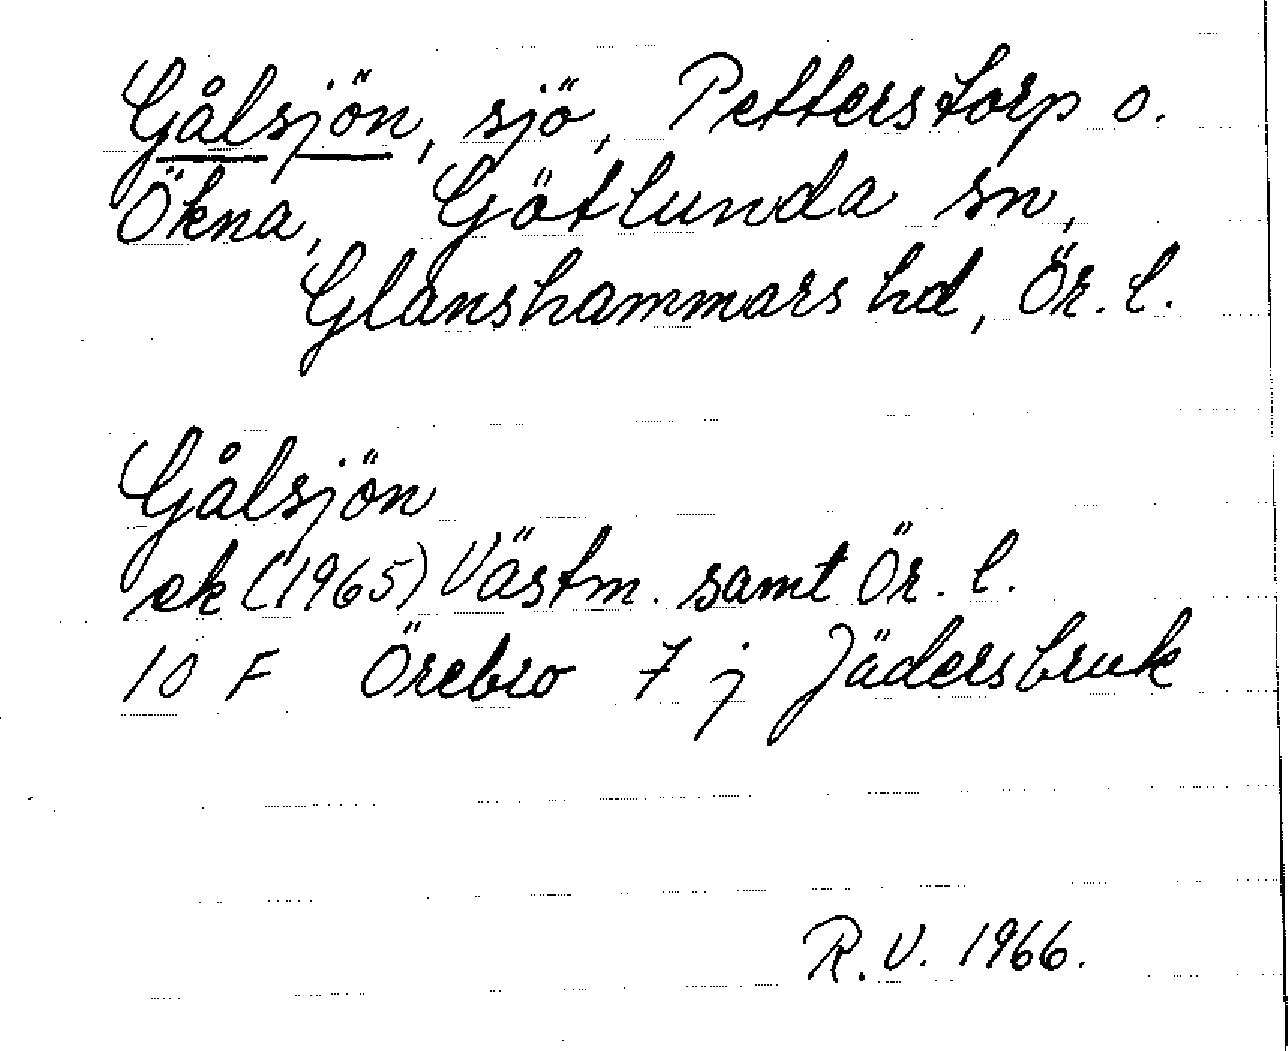 Gålsjön, sjö, Petterstorp o.
Ökna, Götlunda sn,
Glanshammars hd, Ör. l.
Gålsjön
ek (1965) Västm. samt Ör. l.
10 F Örebro 7 j Jädersbruk
R.V. 1966.